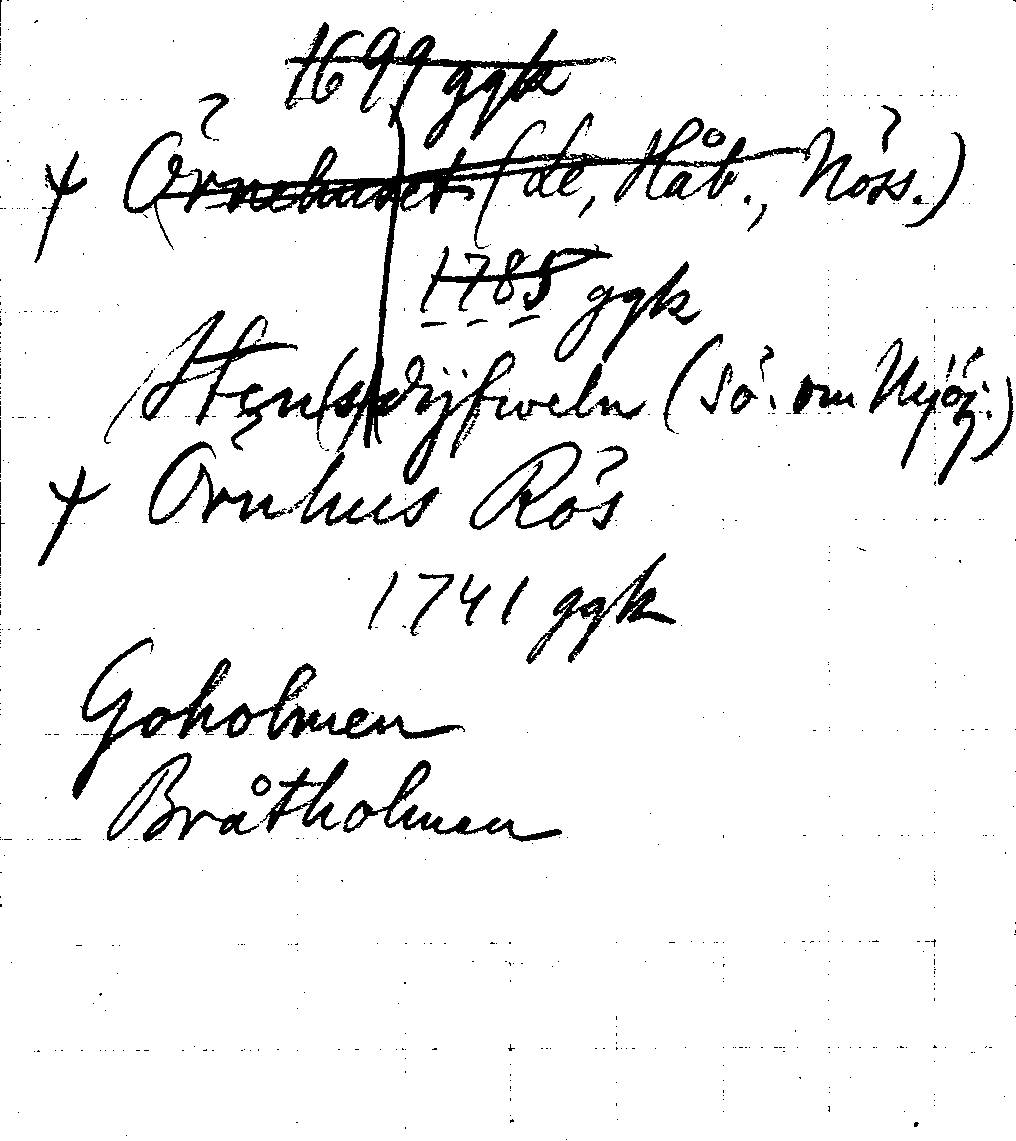 1699 ggk
+ Örnehuset (de, Håb., Nöss.)
1785 ggk
Sten(s)dÿfweln (sö. om Nyöj.)
+ Örnhus Rös
1741 ggk
Goholmen
Bråtholmen